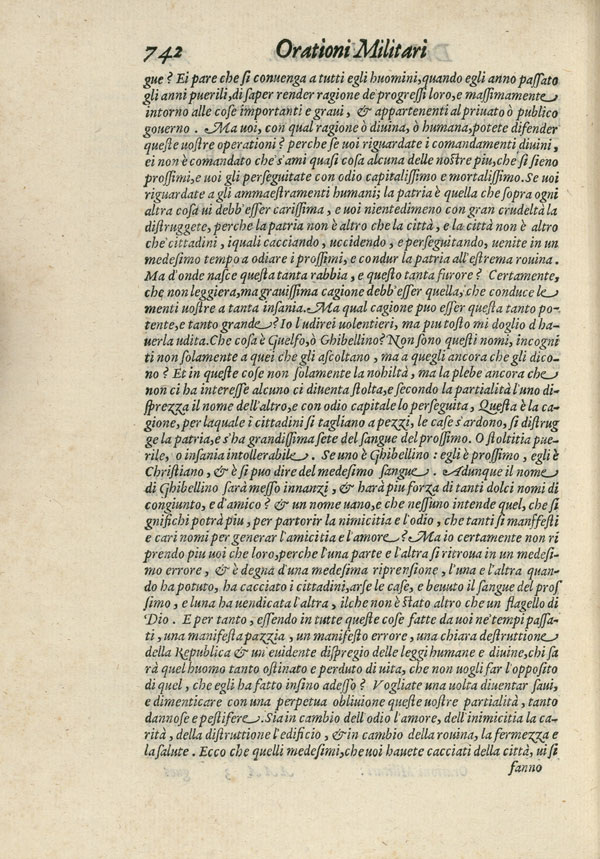 742 Orationi Militari
gue? Ei pare che si conuenga a tutti egli huomini, quando egli anno passato
gli anni puerili, di saper render ragione de progressi loro, e massimamente
intorno alle cose importanti e graui, & appartenenti al priuato ò publico
gouerno. Ma uoi, con qual ragione ò diuina, ò humana, potete difender
queste uostre operationi? perche se uoi riguardate i comandamenti diuini,
ei non è comandato che s'ami quasi cosa alcuna delle nostre piu, che si sieno
prossimi, e uoi gli perseguitate con odio capitalissimo e mortalissimo. Se uoi
riguardate a gli ammaestramenti humani; la patria è quella che sopra ogni
altra cosa ui debb'esser carissima, e uoi nientedimeno con gran crudeltà la
distruggete, perche la patria non è altro che la città, e la città non è altro
che cittadini, iquali cacciando, uccidendo, e perseguitando, uenite in un
medesimo tempo a odiare i prossimi, e condur la patria all'estrema rouina.
Ma d'onde nasce questa tanta rabbia, e questo tanta furore? Certamente,
che non leggiera, ma grauissima cagione debb'esser quella, che conduce le
menti uostre a tanta insania. Ma qual cagione puo esser questa tanto po-
tente, e tanto grande? Io l'udirei uolentieri, ma piu tosto mi doglio d'ha-
uerla udita. Che cosa è Guelfo, ò Ghibellino? Non sono questi nomi, incogni
ti non solamente a quei che gli ascoltano, ma a quegli ancora che gli dico-
no? Et in queste cose non solamente la nobiltà, ma la plebe ancora che
non ci ha interesse alcuno ci diuenta stolta, e secondo la partialità l'uno di-
sprezza il nome dell'altro, e con odio capitale lo perseguita, Questa è la ca-
gione, per laquale i cittadini si tagliano a pezzi, le case s'ardono, si distrug
ge la patria, e s'ha grandissima sete del sangue del prossimo. O stoltitia pue-
rile, o insania intollerabile. Se uno è Ghibellino: egli è prossimo, egli è
Christiano, & è si puo dire del medesimo sangue. Adunque il nome
di Ghibellino sarà messo innanzi, & harà piu forza di tanti dolci nomi di
congiunto, e d'amico? & un nome uano, e che nessuno intende quel, che si
gnifichi potrà piu, per partorir la nimicitia e l'odio, che tanti si manffesti
e cari nomi per generar l'amicitia e l'amore? Ma io certamente non ri
prendo piu uoi che loro, perche l'una parte e l'altra si ritroua in un medesi-
mo errore, & è degna d'una medesima riprensione, l'una e l'altra quan-
do ha potuto, ha cacciato i cittadini, arse le case, e beuuto il sangue del pros
simo, e l'una ha uendicata l'altra, ilche non è stato altro che un flagello di
Dio. E per tanto, essendo in tutte queste cose fatte da uoi ne' tempi passa-
ti, una manifesta pazzia, un manifesto errore, una chiara destruttione
della Republica & un euidente dispregio delle leggi humane e diuine, chi sa
rà quel huomo tanto ostinato e perduto di uita, che non uogli far l'opposito
di quel, che egli ha fatto insino adesso? Vogliate una uolta diuentar saui,
e dimenticare con una perpetua obliuione queste uostre partialità, tanto
dannose e pestifere. Sia in cambio dell'odio l'amore, dell'inimicitia la ca-
rità, della distruttione l'edificio, & in cambio della rouina, la fermezza e
la salute. Ecco che quelli medesimi, che uoi hauete cacciati della città, ui si
fanno